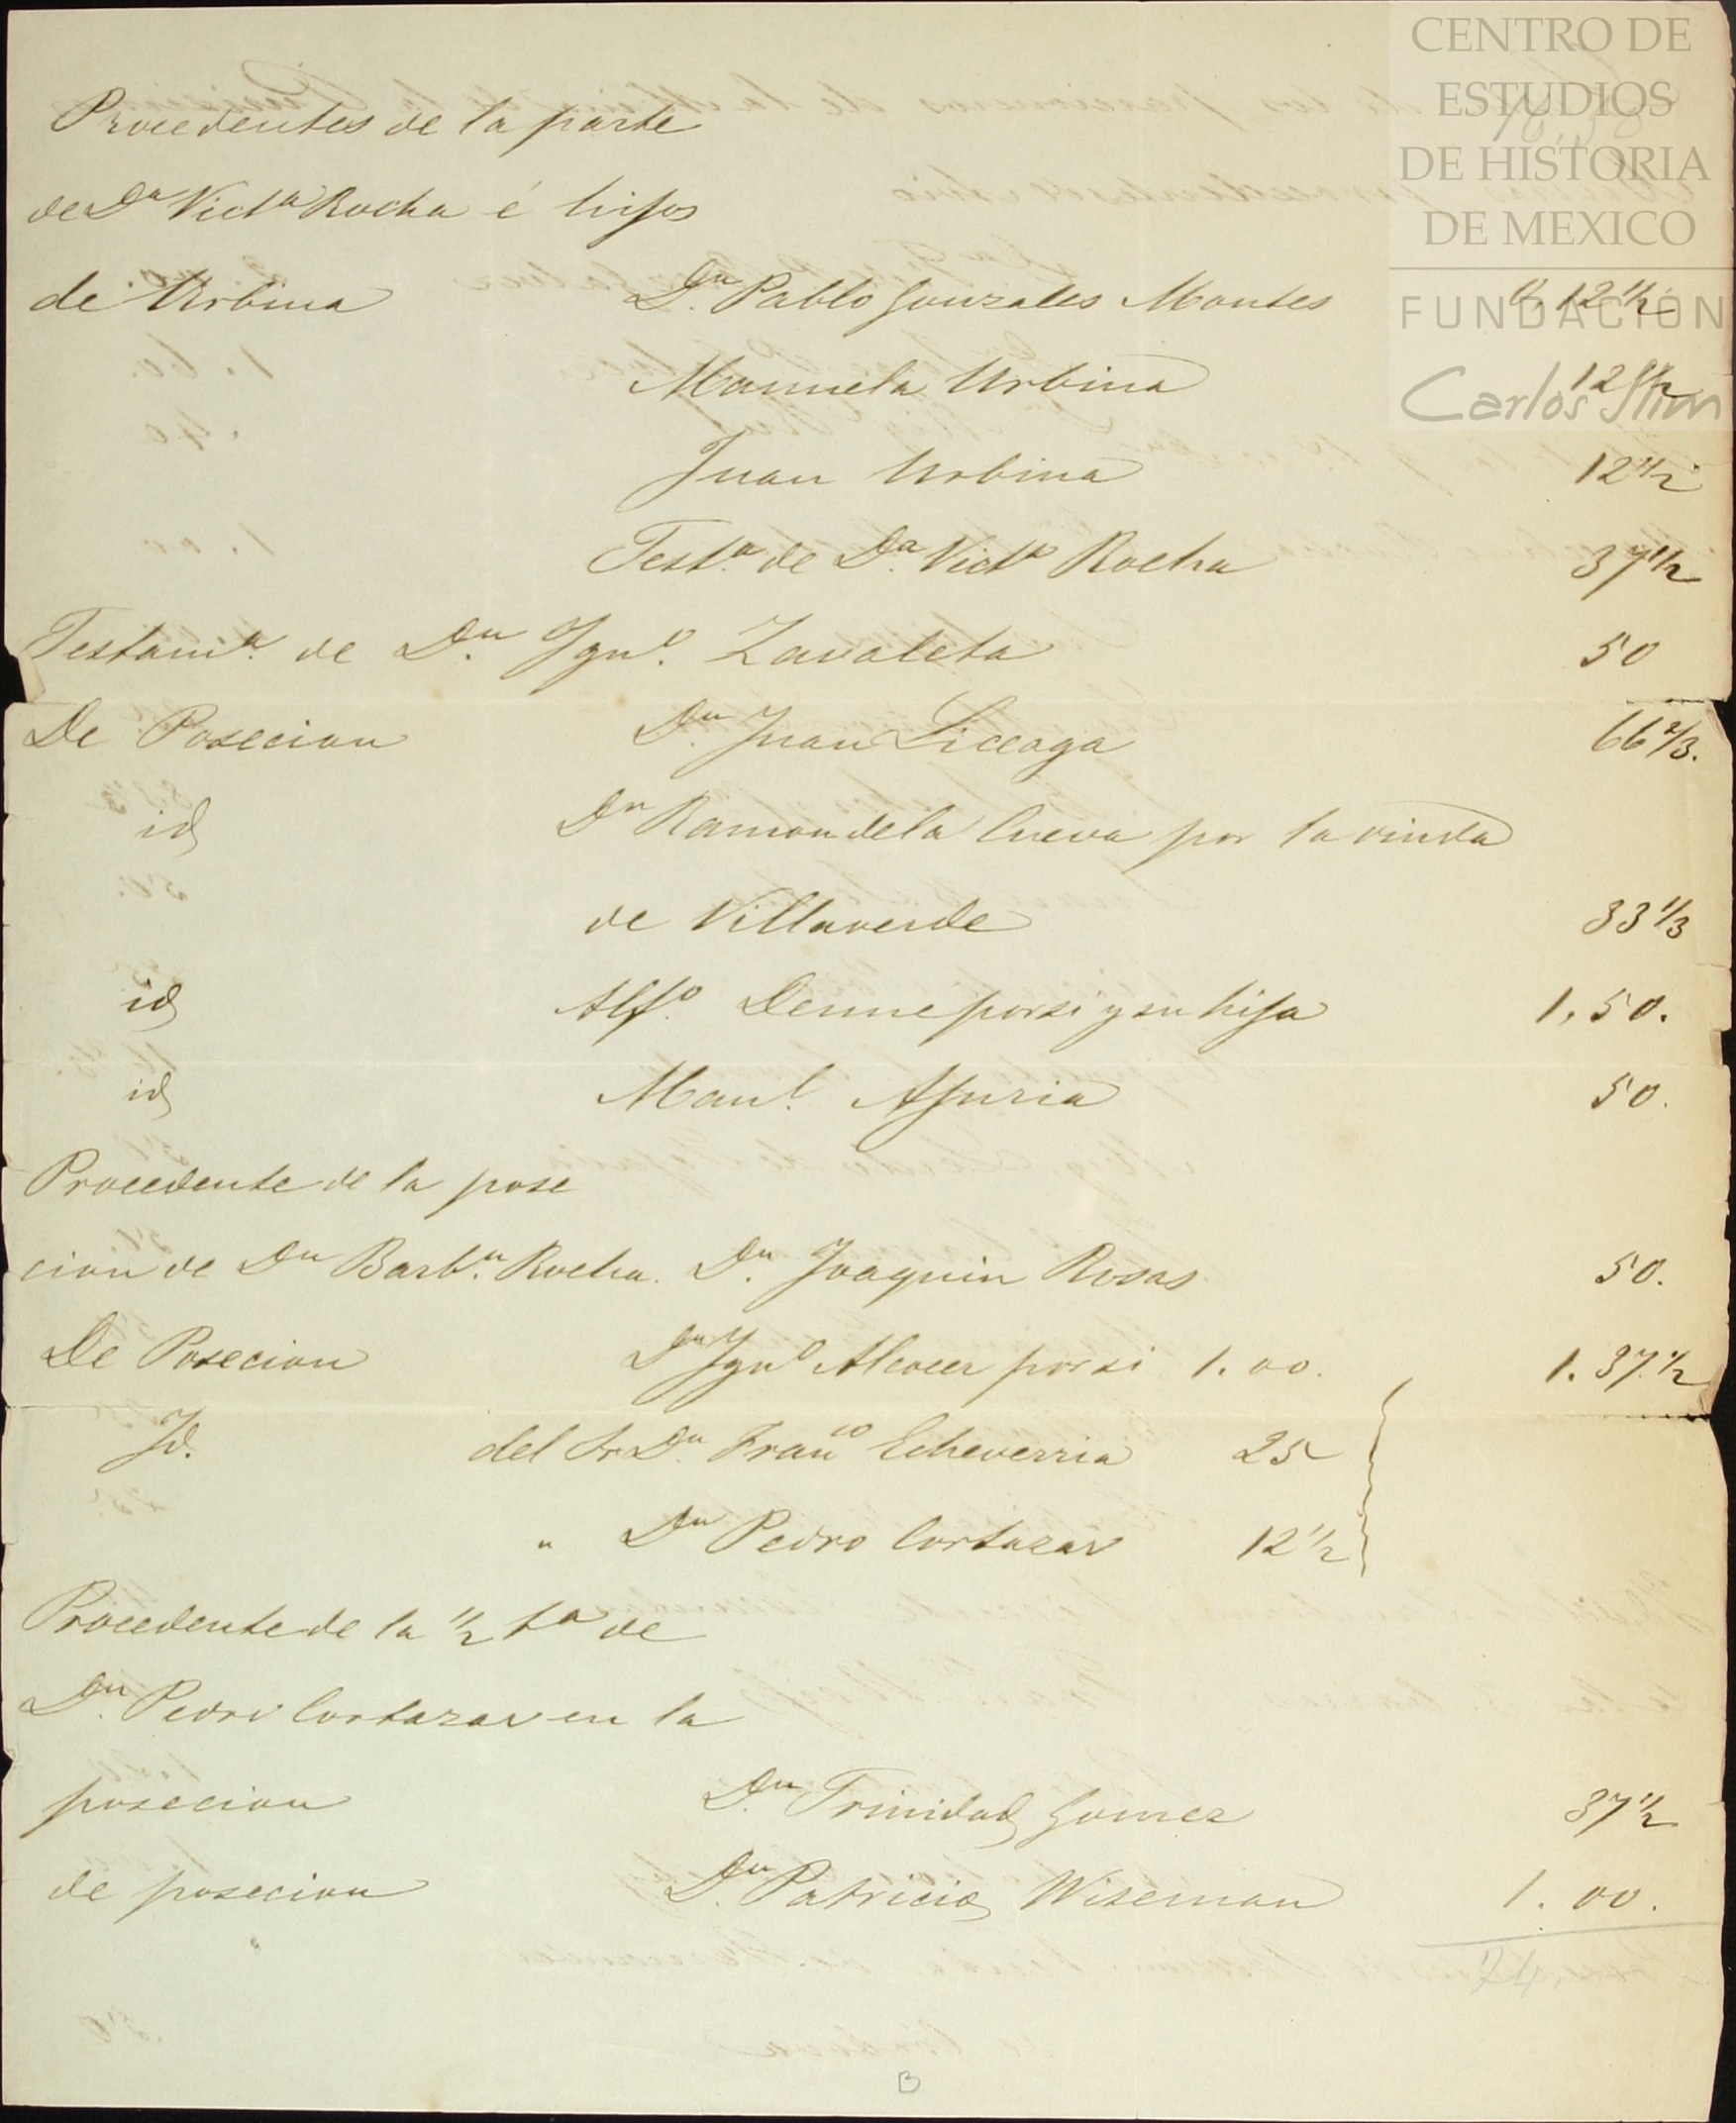 CENTRO DE
ESTUDIOS
DE HISTORIA
DE MEXICO
FUNDACIÓN
Carlos Slim
Procedentes de la parte
de Da Victa Rocha é hijos
de Urbina Dn. Pablo Gonzales Montes 0,12 1/2
Manuela Urbina 12 1/2
Juan Urbina 12 1/2
Testa. de Da. Victa Rocha 37 1/2
Testamta. de Dn. Ygno. Zavaleta 50
De Posecion Dn. Juan Liceaga 66 2/3.
id Dn Ramon de la Cueva por la viuda
de Villaverde 33 1/3
id Alfo. Denne por si y su hija 1,50.
id Manl. Ajuria 50.
Procedente de la pose
cion de Da Barba. Rocha. Dn. Joaquin Rosas 50.
De Posecion Dn Ygno Alcocer por si 1.00. 1.37 1/2
Yd. del Sr Dn. Franco Echeverria 25
" Dn Pedro Cortazar 12 1/2
Procedente de la 1/2 ba de
Dn. Pedro Cortazar en la
posecion Dn. Trinidad Gomez 37 1/2
de posecion Dn. Patricio Wiseman 1.00.
24,
B